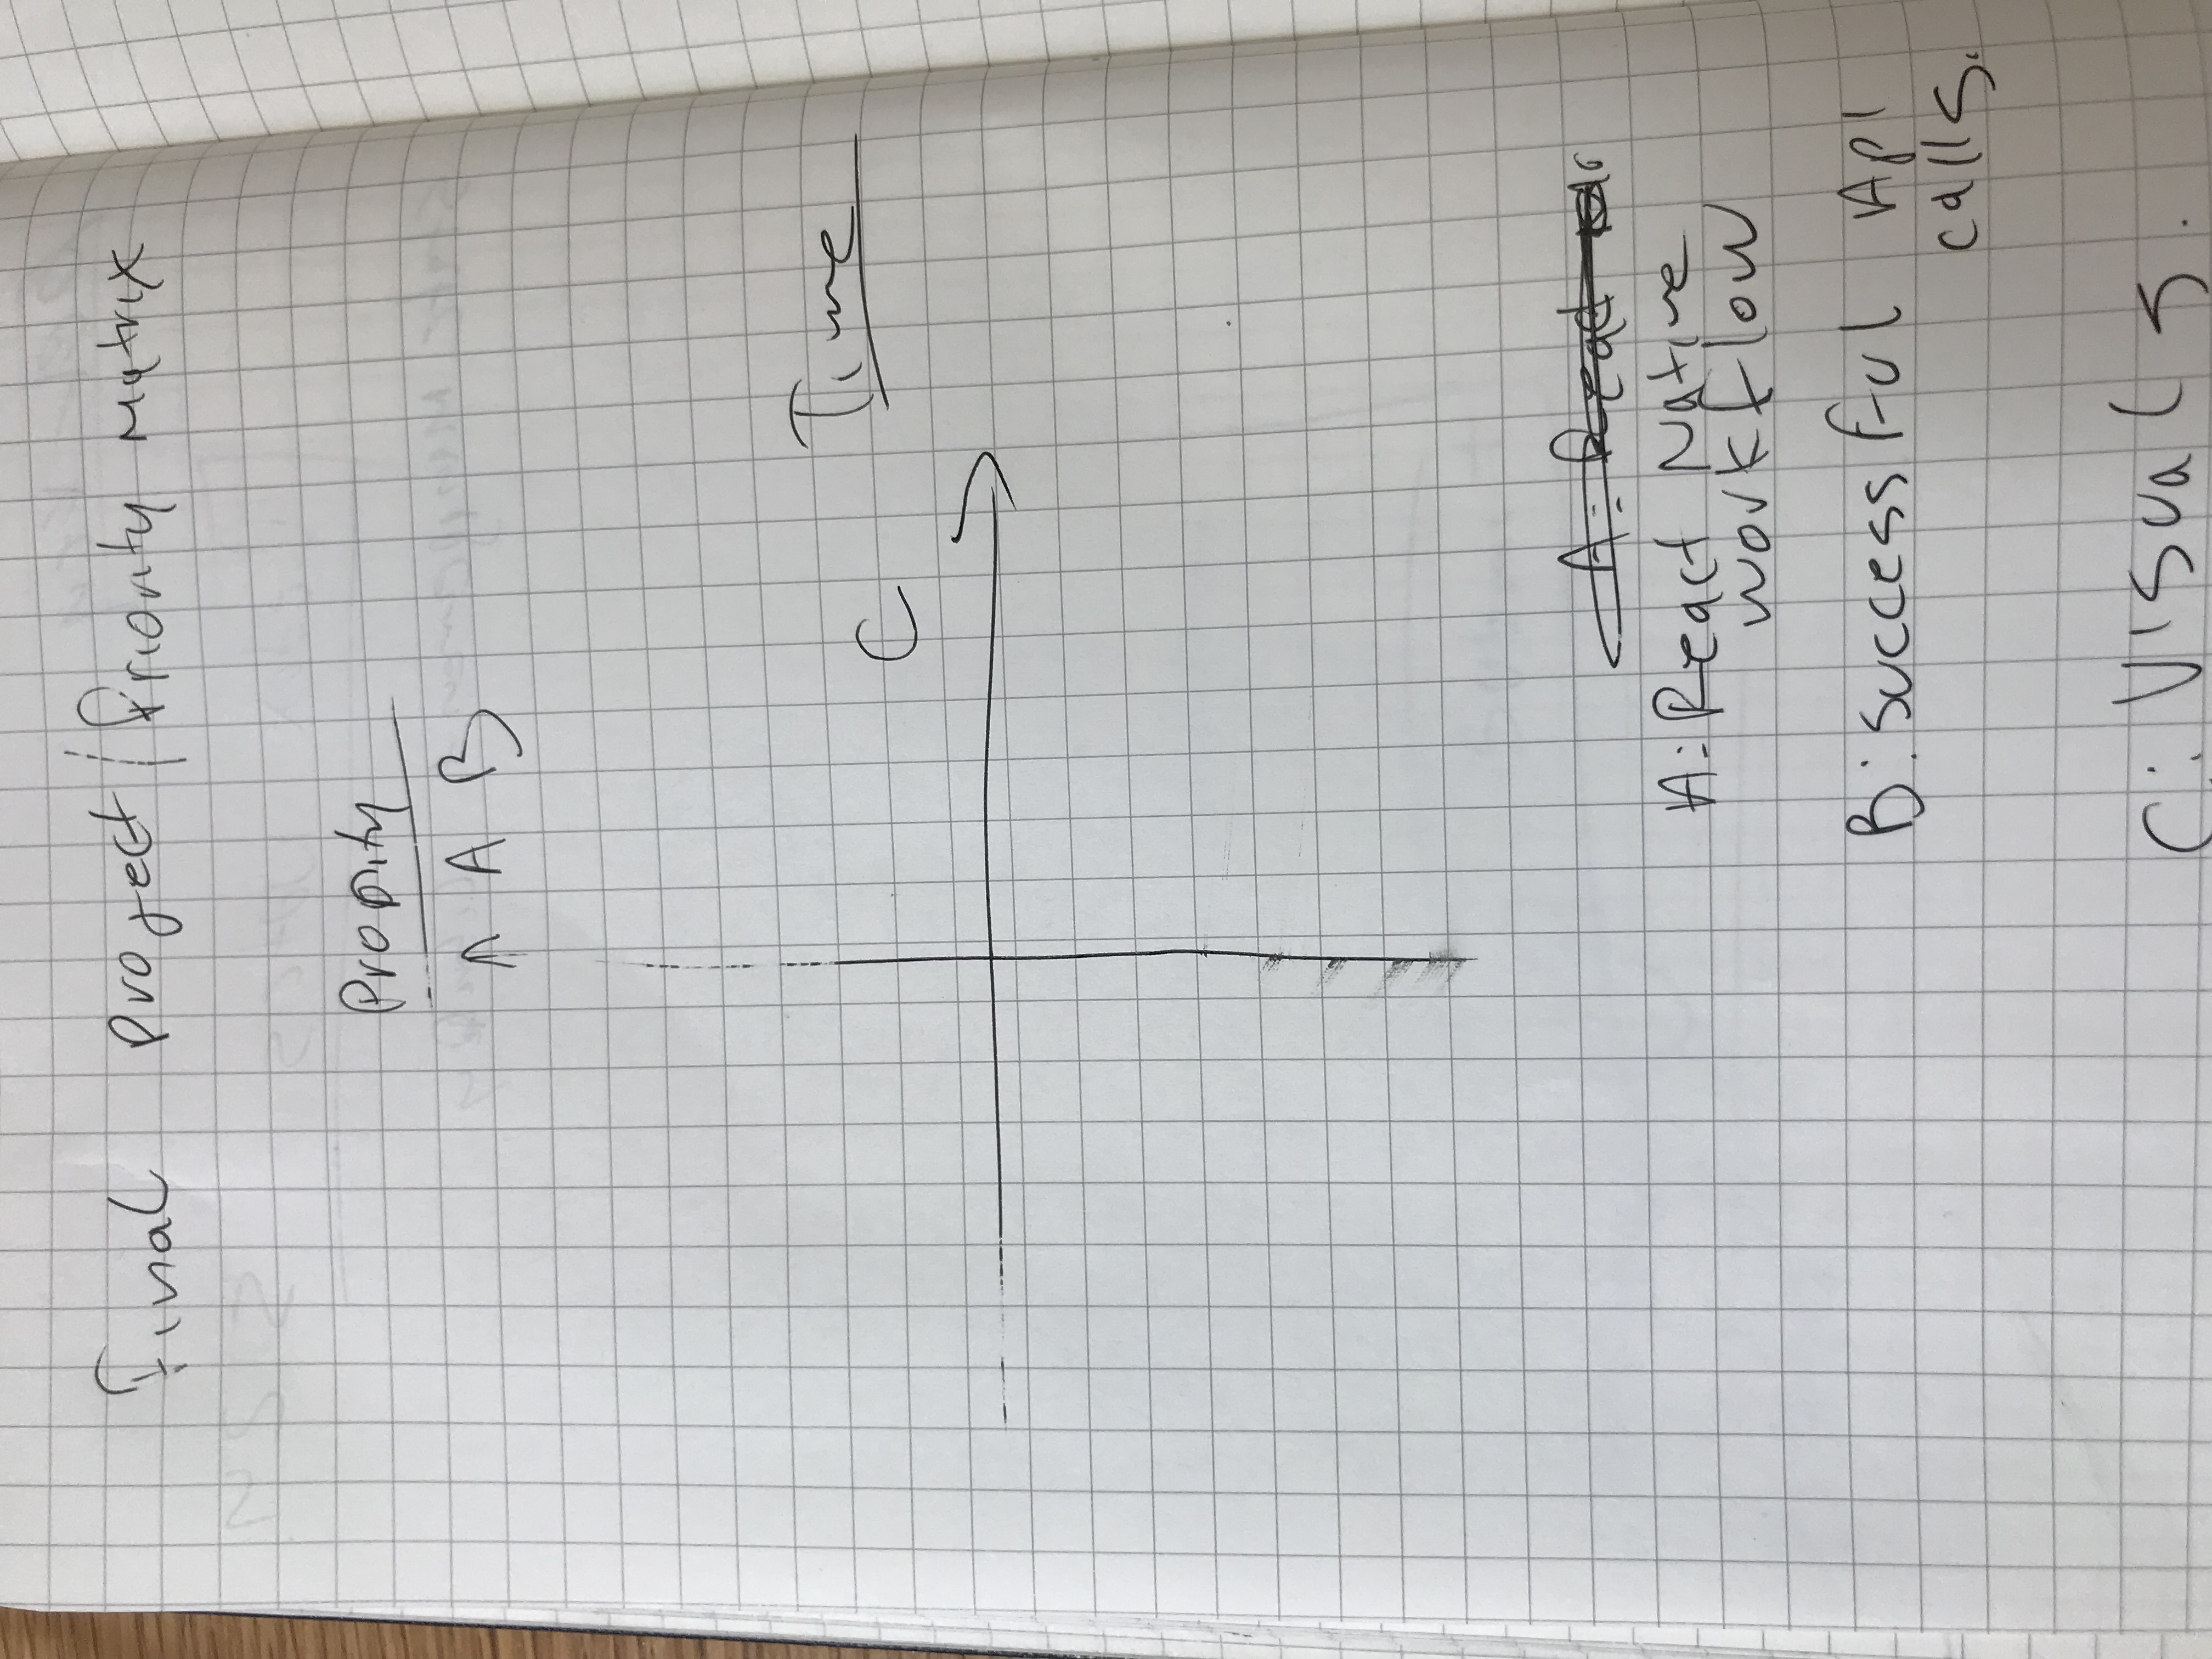 Final Project / Priority Matrix
Prority
↑ A B
Time
C
A: React
A: React Native
workflow
B: successful Api
calls.
C: Visuals.